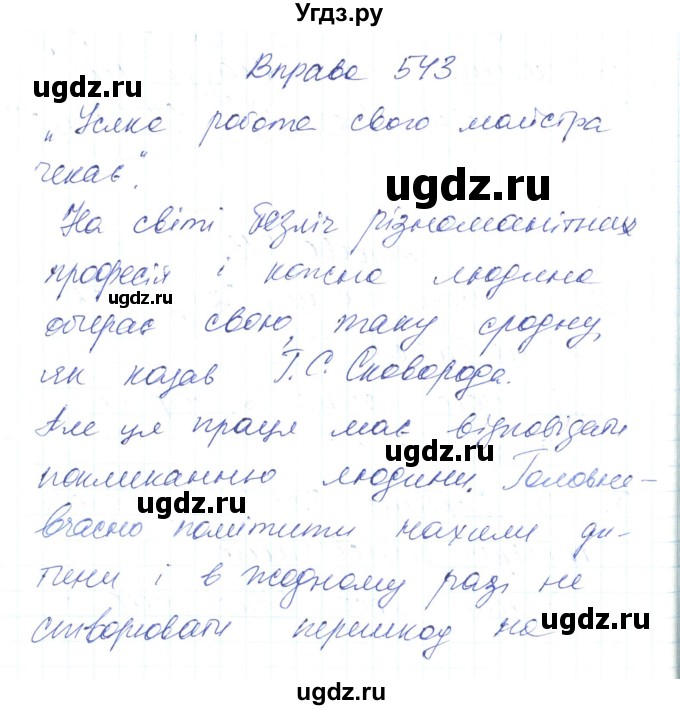 Угдз.ру
Вправа 543
ugdz.ru
„Усяка робота свого майстра
чекає".
ugdz.ru
На світі безліч різноманітних
професій і кожна людина
ugdz.ru
обирає свою, таку сродну,
як казав Г.С. Сковорода.
ugdz.ru
Але ця праця має відповідати
ugdz.ru
покликанню людини. Головне -
ugdz.ru
вчасно помітити нахили ди-
тини і в жодному разі не
створювати перешкод на
ugdz.ru
ugdz.ru